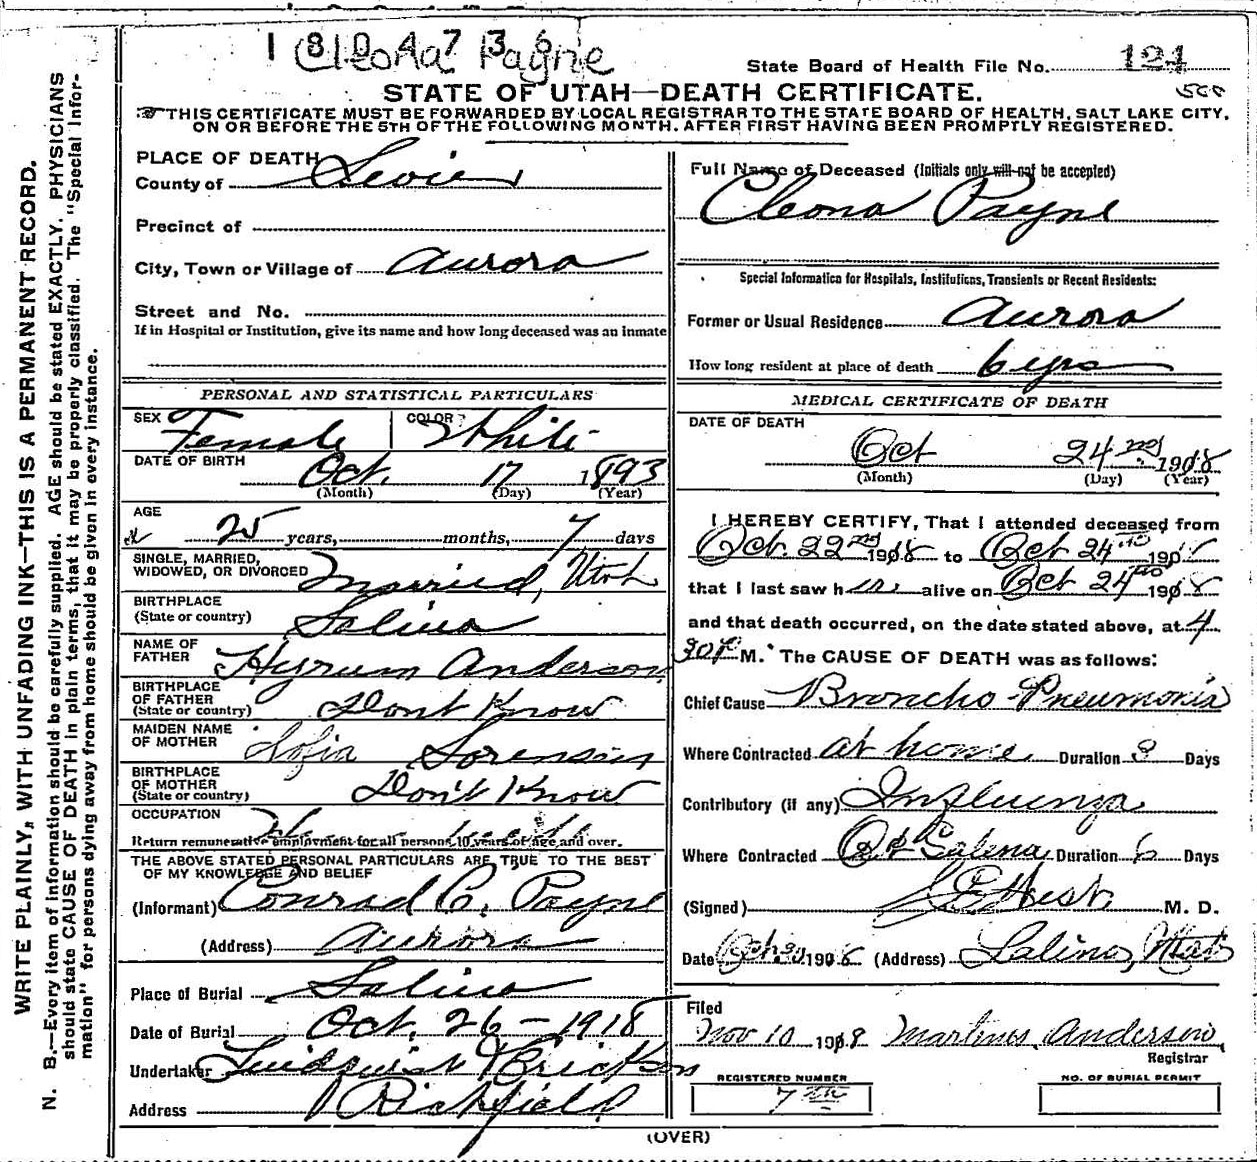 1 8 0 4 7 3 6
Cleona Payne
State Board of Health File No. 124
500
STATE OF UTAH—DEATH CERTIFICATE.
THIS CERTIFICATE MUST BE FORWARDED BY LOCAL REGISTRAR TO THE STATE BOARD OF HEALTH, SALT LAKE CITY,
ON OR BEFORE THE 5TH OF THE FOLLOWING MONTH, AFTER FIRST HAVING BEEN PROMPTLY REGISTERED.
WRITE PLAINLY, WITH UNFADING INK—THIS IS A PERMANENT RECORD.
N. B.—Every item of information should be carefully supplied. AGE should be stated EXACTLY. PHYSICIANS
should state CAUSE OF DEATH in plain terms, that it may be properly classified. The "Special Infor-
mation" for persons dying away from home should be given in every instance.
PLACE OF DEATH
County of Sevier
Precinct of
City, Town or Village of Aurora
Street and No.
If in Hospital or Institution, give its name and how long deceased was an inmate
PERSONAL AND STATISTICAL PARTICULARS
SEX Female COLOR White
DATE OF BIRTH Oct. 17 1893
(Month) (Day) (Year)
AGE
25 years, months, 7 days
SINGLE, MARRIED,
WIDOWED, OR DIVORCED Married, Utah
BIRTHPLACE
(State or country) Salina
NAME OF
FATHER Hyrum Anderson
BIRTHPLACE
OF FATHER
(State or country) Dont Know
MAIDEN NAME
OF MOTHER Sofia Sorensen
BIRTHPLACE
OF MOTHER
(State or country) Don't Know
OCCUPATION
Return remunerative employment for all persons 10 years of age and over.
THE ABOVE STATED PERSONAL PARTICULARS ARE TRUE TO THE BEST
OF MY KNOWLEDGE AND BELIEF
(Informant) Conrad C. Payne
(Address) Aurora
Place of Burial Salina
Date of Burial Oct. 26 - 1918
Undertaker Lindquist & Erickson
Address Richfield
Full Name of Deceased (Initials only will not be accepted)
Cleona Payne
Special Information for Hospitals, Institutions, Transients or Recent Residents:
Former or Usual Residence Aurora
How long resident at place of death 6 yrs
MEDICAL CERTIFICATE OF DEATH
DATE OF DEATH
Oct 24 1918
(Month) (Day) (Year)
I HEREBY CERTIFY, That I attended deceased from
Oct. 22nd 1918 to Oct 24th 1918
that I last saw her alive on Oct 24th 1918
and that death occurred, on the date stated above, at 4
30 P. M. The CAUSE OF DEATH was as follows:
Chief Cause Broncho-Pneumonia
Where Contracted at home Duration 3 Days
Contributory (if any) Influenza
Where Contracted At Salina Duration 6 Days
(Signed) West M. D.
Date Oct 30 1918 (Address) Salina, Utah
Filed
Nov 10 1918 Martinus Anderson
Registrar
REGISTERED NUMBER
7th
NO. OF BURIAL PERMIT
(OVER)